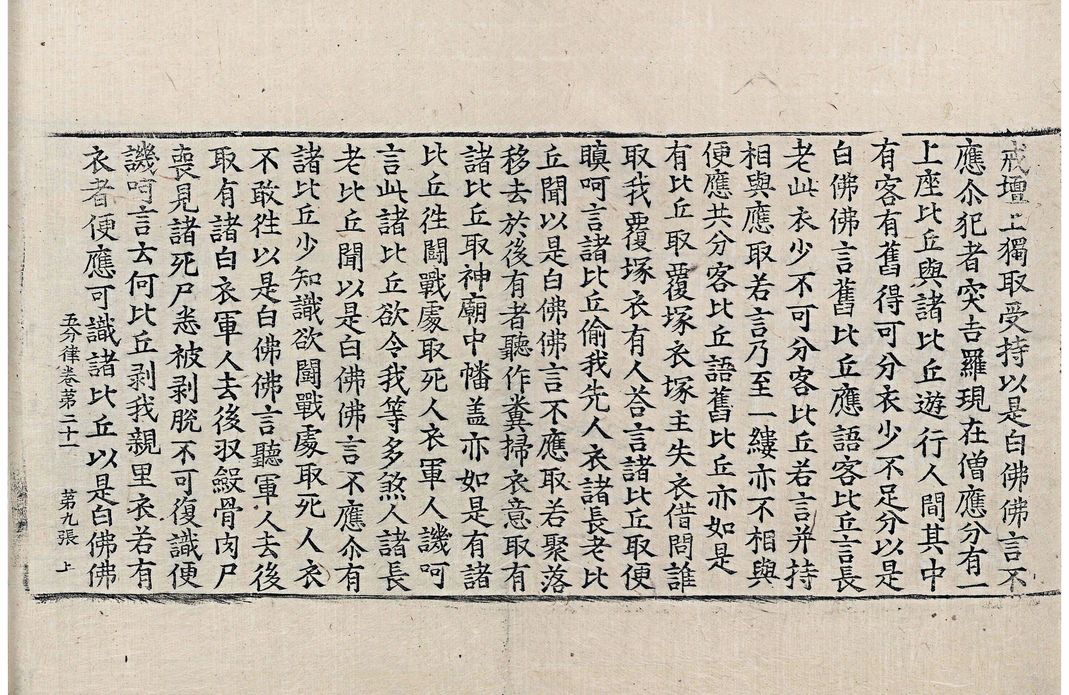 戒壇上獨取受持以是白佛佛言不
應尒犯者突吉羅現在僧應分有一
上座比丘與諸比丘遊行人間其中
有客有舊得可分衣少不足分以是
白佛佛言舊比丘應語客比丘言長
老此衣少不可分客比丘若言并持
相與應取若言乃至一縷亦不相與
便應共分客比丘語舊比丘亦如是
有比丘取覆塚衣塚主失衣借問誰
取我覆塚衣有人荅言諸比丘取便
瞋呵言諸比丘偷我先人衣諸長老比
丘聞以是白佛佛言不應取若聚落
移去於後有者聽作糞掃衣意取有
諸比丘取神廟中幡盖亦如是有諸
比丘徃鬪戰處取死人衣軍人譏呵
言此諸比丘欲令我等多煞人諸長
老比丘聞以是白佛佛言不應尒有
諸比丘少知識欲鬪戰處取死人衣
不敢徃以是白佛佛言聽軍人去後
取有諸白衣軍人去後収骸骨肉尸
喪見諸死尸悉被剥脫不可復識便
譏呵言云何比丘剥我親里衣若有
衣者便應可識諸比丘以是白佛佛
五分律卷第二十一 第九張 上